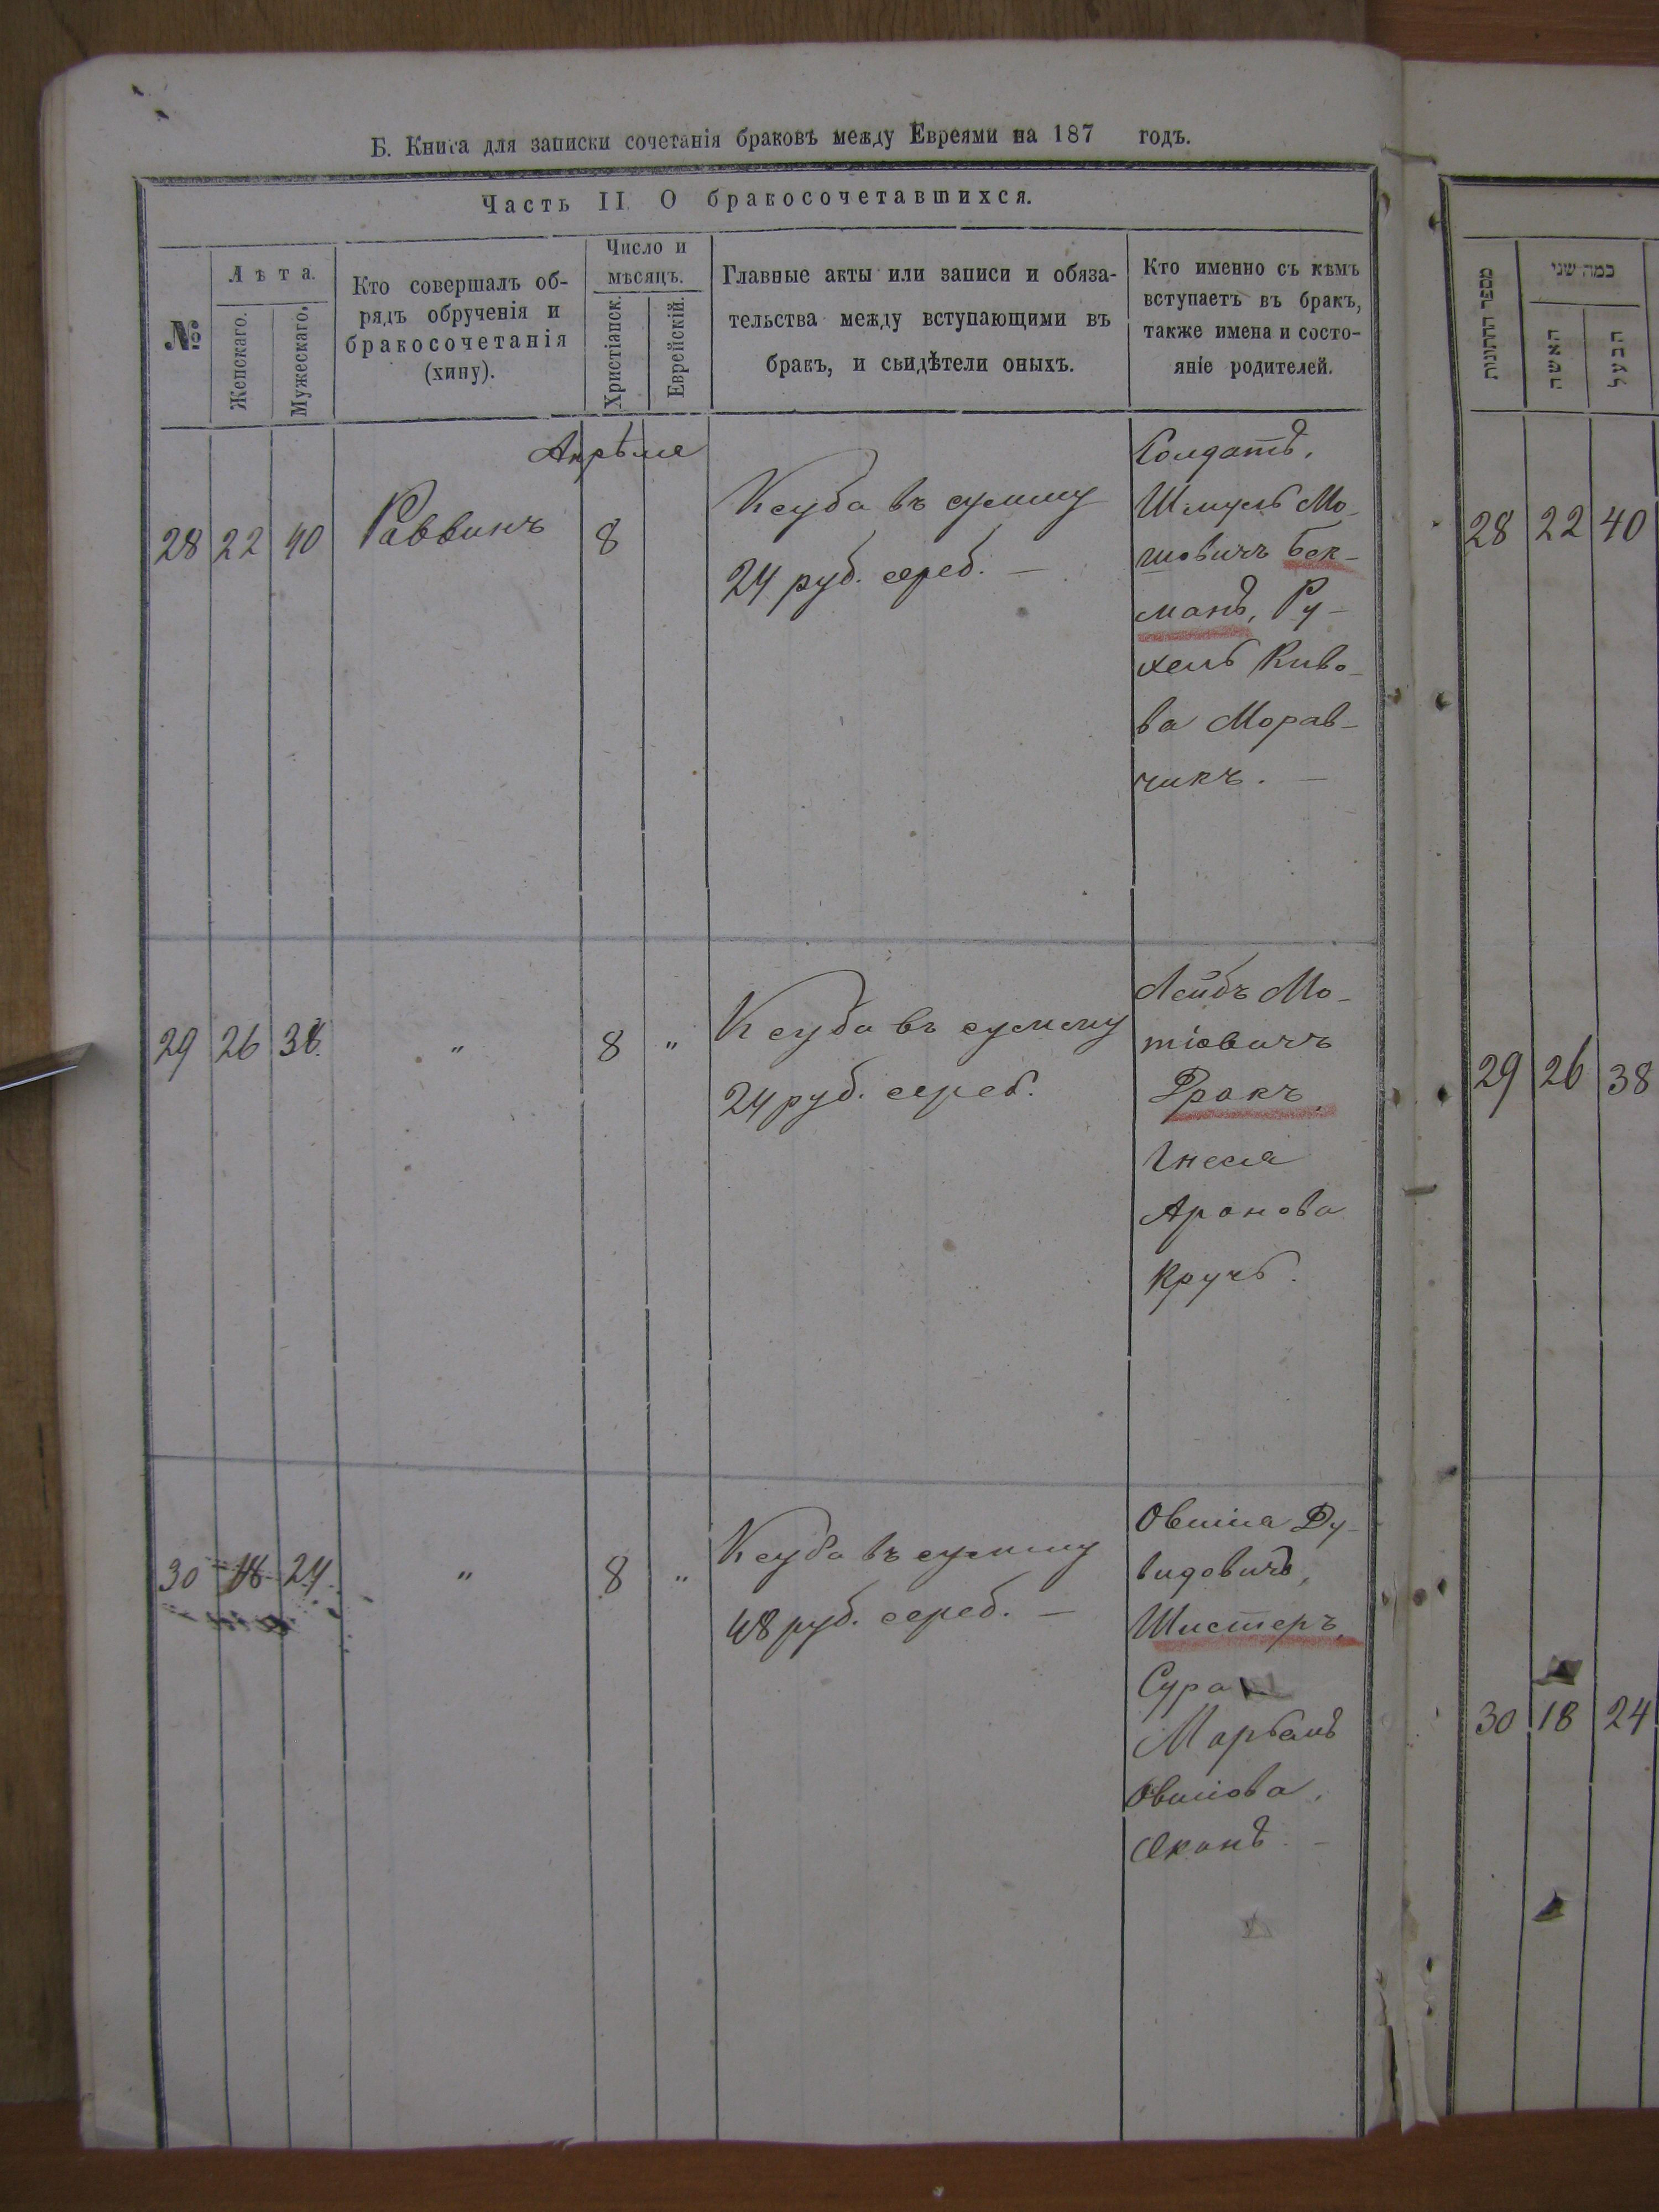 Б. Книга для записки сочетанія браковъ между Евреями на 187 годъ.
Часть II О бракосочетавшихся.
№
Лѣта.
Женскаго.
Мужескаго.
Кто совершалъ об-
рядъ обрученія и
бракосочетанія
(хипу).
Число и
мѣсяцъ.
Христіанск.
Еврейскій.
Главные акты или записи и обяза-
тельства между вступающими въ
бракъ, и свидѣтели оныхъ.
Кто именно съ кѣмъ
вступаетъ въ бракъ,
также имена и состо-
яніе родителей.
Апрѣля
28 22 40 Раввинъ 8
Ксуба въ сумму
24 руб. сереб. —
Солдатъ,
Шмуль Мо-
шовичъ Бек-
манъ, Ру-
хель Киво-
ва Морав-
чикъ. —
29 26 38. " 8 "
Ксуба въ сумму
24 руб. сереб.
Лейбъ Мо-
тіовичъ
Фракъ,
Гнеся
Аронова
Кручь.
30 18 24 " 8 "
Ксуба въ сумму
48 руб. сереб. —
Овшіа Ду-
видовичъ,
Шистеръ,
Сура
Овшіова,
מספר החתונות
כמה שני
האשה
הבעל
28 22 40
29 26 38
30 18 24